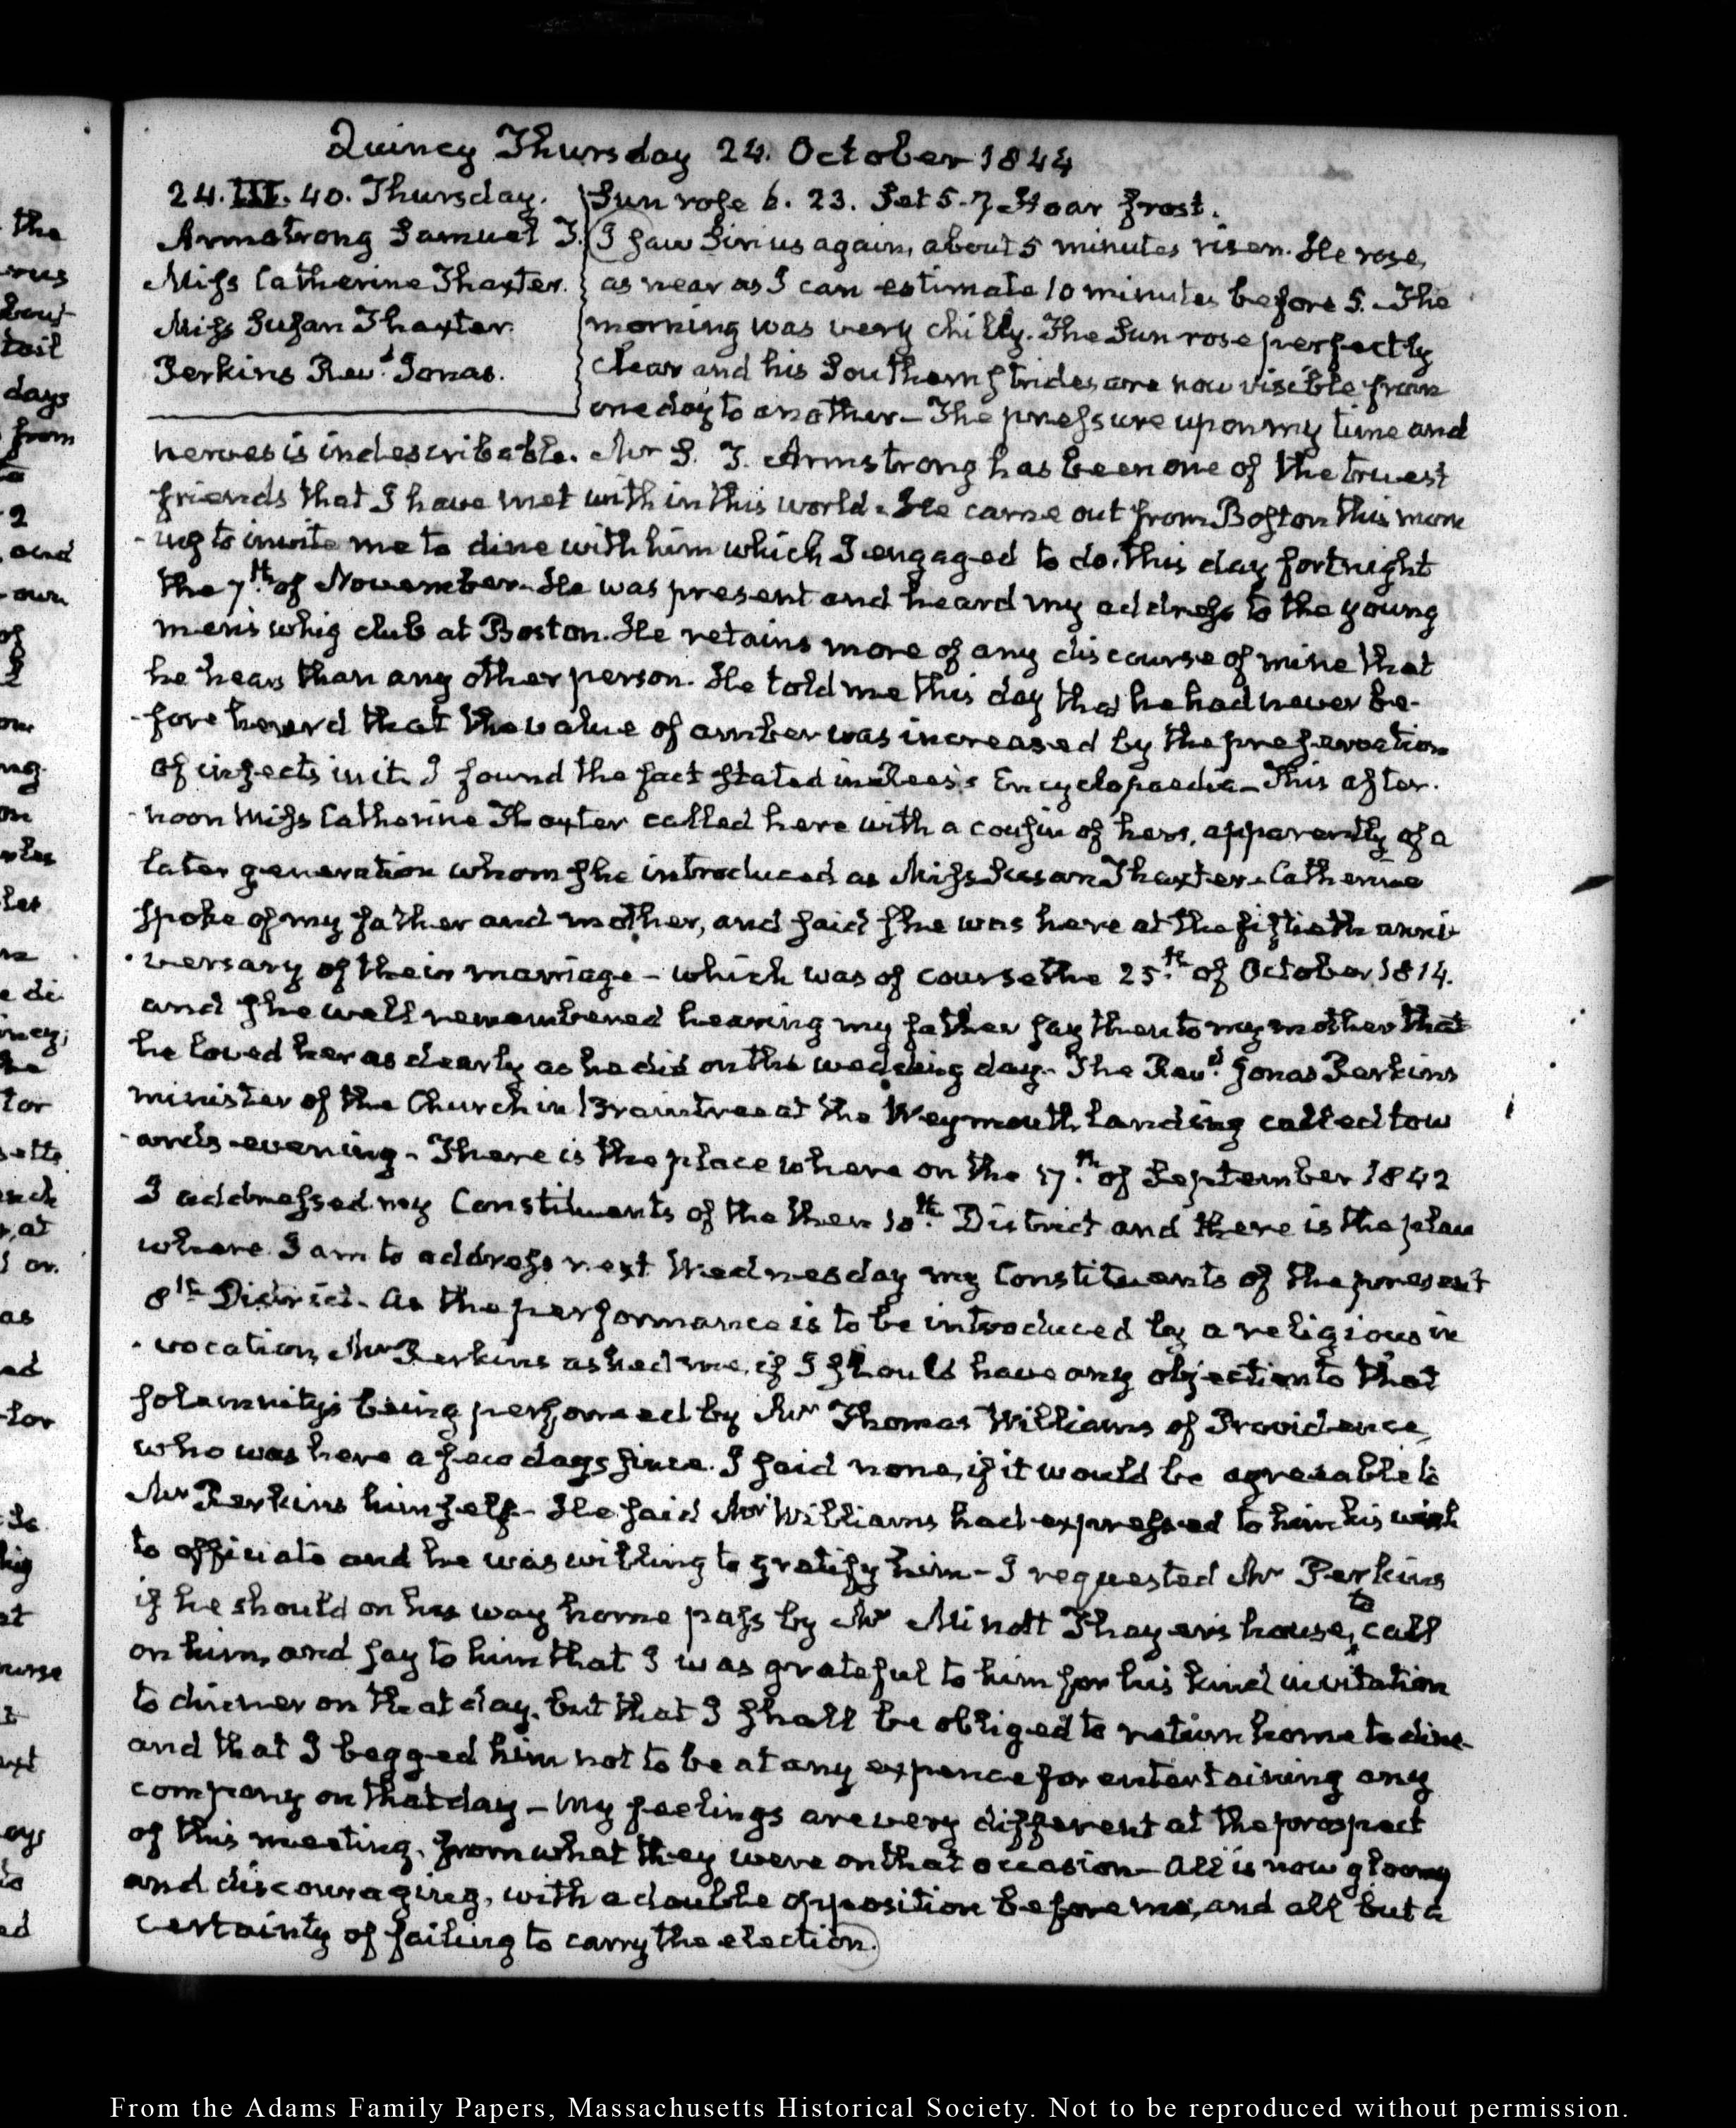 Quincy Thursday 24. October 1844
24. III. 40. Thursday.
Armstrong Samuel T.
Miss Catherine Thaxter.
Miss Susan Thaxter.
Perkins Revd. Jonas.
Sun rose 6. 23. Set 5-7 Hoar frost.
I saw Sirius again, about 5 minutes risen. He rose,
as near as I can estimate 10 minutes before 5. The
morning was very chilly. The Sun rose perfectly
clear and his Southern strides are now visible from
one day to another— The pressure upon my time and
nerves is indescribable. Mr S. T. Armstrong has been one of the truest
friends that I have met with in this world. He came out from Boston this morn
-ing to invite me to dine with him which I engaged to do. this day fortnight
the 7th. of November. He was present and heard my address to the young
men's whig club at Boston. He retains more of any discourse of mine that
he hears than any other person. He told me this day that he had never be-
-fore heard that the value of amber was increased by the preservation
of insects in it. I found the fact stated in Rees's Encyclopaedia— This after.
-noon Miss Catherine Thaxter called here with a cousin of hers, apparently of a
later generation whom she introduced as Miss Susan Thaxter. Catherine
spoke of my father and mother, and said she was here at the fiftieth anni
-versary of their marriage— which was of course the 25th. of October 1814.
and she well remembered hearing my father say then to my mother that
he loved her as dearly as he did on the wedding day. The Revd. Jonas Perkins
minister of the Church in Braintree at the Weymouth landing called tow
-ards evening. There is the place where on the 17th. of September 1842
I addressed my Constituents of the then 10th. District and there is the place
where I am to address next Wednesday my Constituents of the present
8th District. As the performance is to be introduced by a religious in
-vocation, Mr Perkins asked me, if I should have any objection to that
solemnity's being performed by Mr Thomas Williams of Providence,
who was here a few days since. I said none, if it would be agreeable to
Mr Perkins himself— He said Mr Williams had expressed to him his wish
to officiate and he was willing to gratify him— I requested Mr Perkins
if he should on his way home pass by Mr Minott Thayer's house, to call
on him, and say to him that I was grateful to him for his kind invitation
to dinner on that day. but that I shall be obliged to return home to dine
and that I begged him not to be at any expence for entertaining any
company on that day— My feelings are very different at the prospect
of this meeting, from what they were on that occasion— All is now gloomy
and discouraging, with a double opposition before me, and all but a
certainty of failing to carry the election.
From the Adams Family Papers, Massachusetts Historical Society. Not to be reproduced without permission.